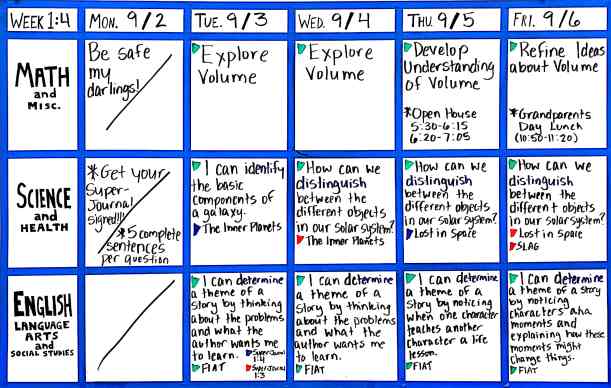 WEEK 1:4
MON. 9/2
TUE. 9/3
WED. 9/4
THU. 9/5
FRI. 9/6
MATH
and
MISC.
Be safe
my
darlings!
Explore
Volume
Explore
Volume
Develop
Understanding
of Volume
*Open House
5:30-6:15
6:20-7:05
Refine Ideas
about Volume
*Grandparents
Day Lunch
(10:50-11:20)
SCIENCE
and
HEALTH
*Get your
Super-
Journal
signed!!!
*5 complete
sentences
per question
I can identify
the basic
components of
a galaxy.
The Inner Planets
How can we
distinguish
between the
different objects
in our solar system?
The Inner Planets
How can we
distinguish
between the
different objects
in our solar system?
Lost in Space
How can we
distinguish
between the
different objects
in our solar system?
Lost in Space
SLAG
ENGLISH
LANGUAGE
ARTS
and
SOCIAL STUDIES
I can determine
a theme of a
story by thinking
about the problems
and what the
author wants me
to learn.
SuperJournal
1:4
FIAT
SuperJournal
1:3
I can determine
a theme of a
story by thinking
about the problems
and what the
author wants me
to learn.
FIAT
I can determine
a theme of a
story by noticing
when one character
teaches another
character a life
lesson.
FIAT
I can determine
a theme of a story
by noticing
characters' aha
moments and
explaining how these
moments might
change things.
FIAT